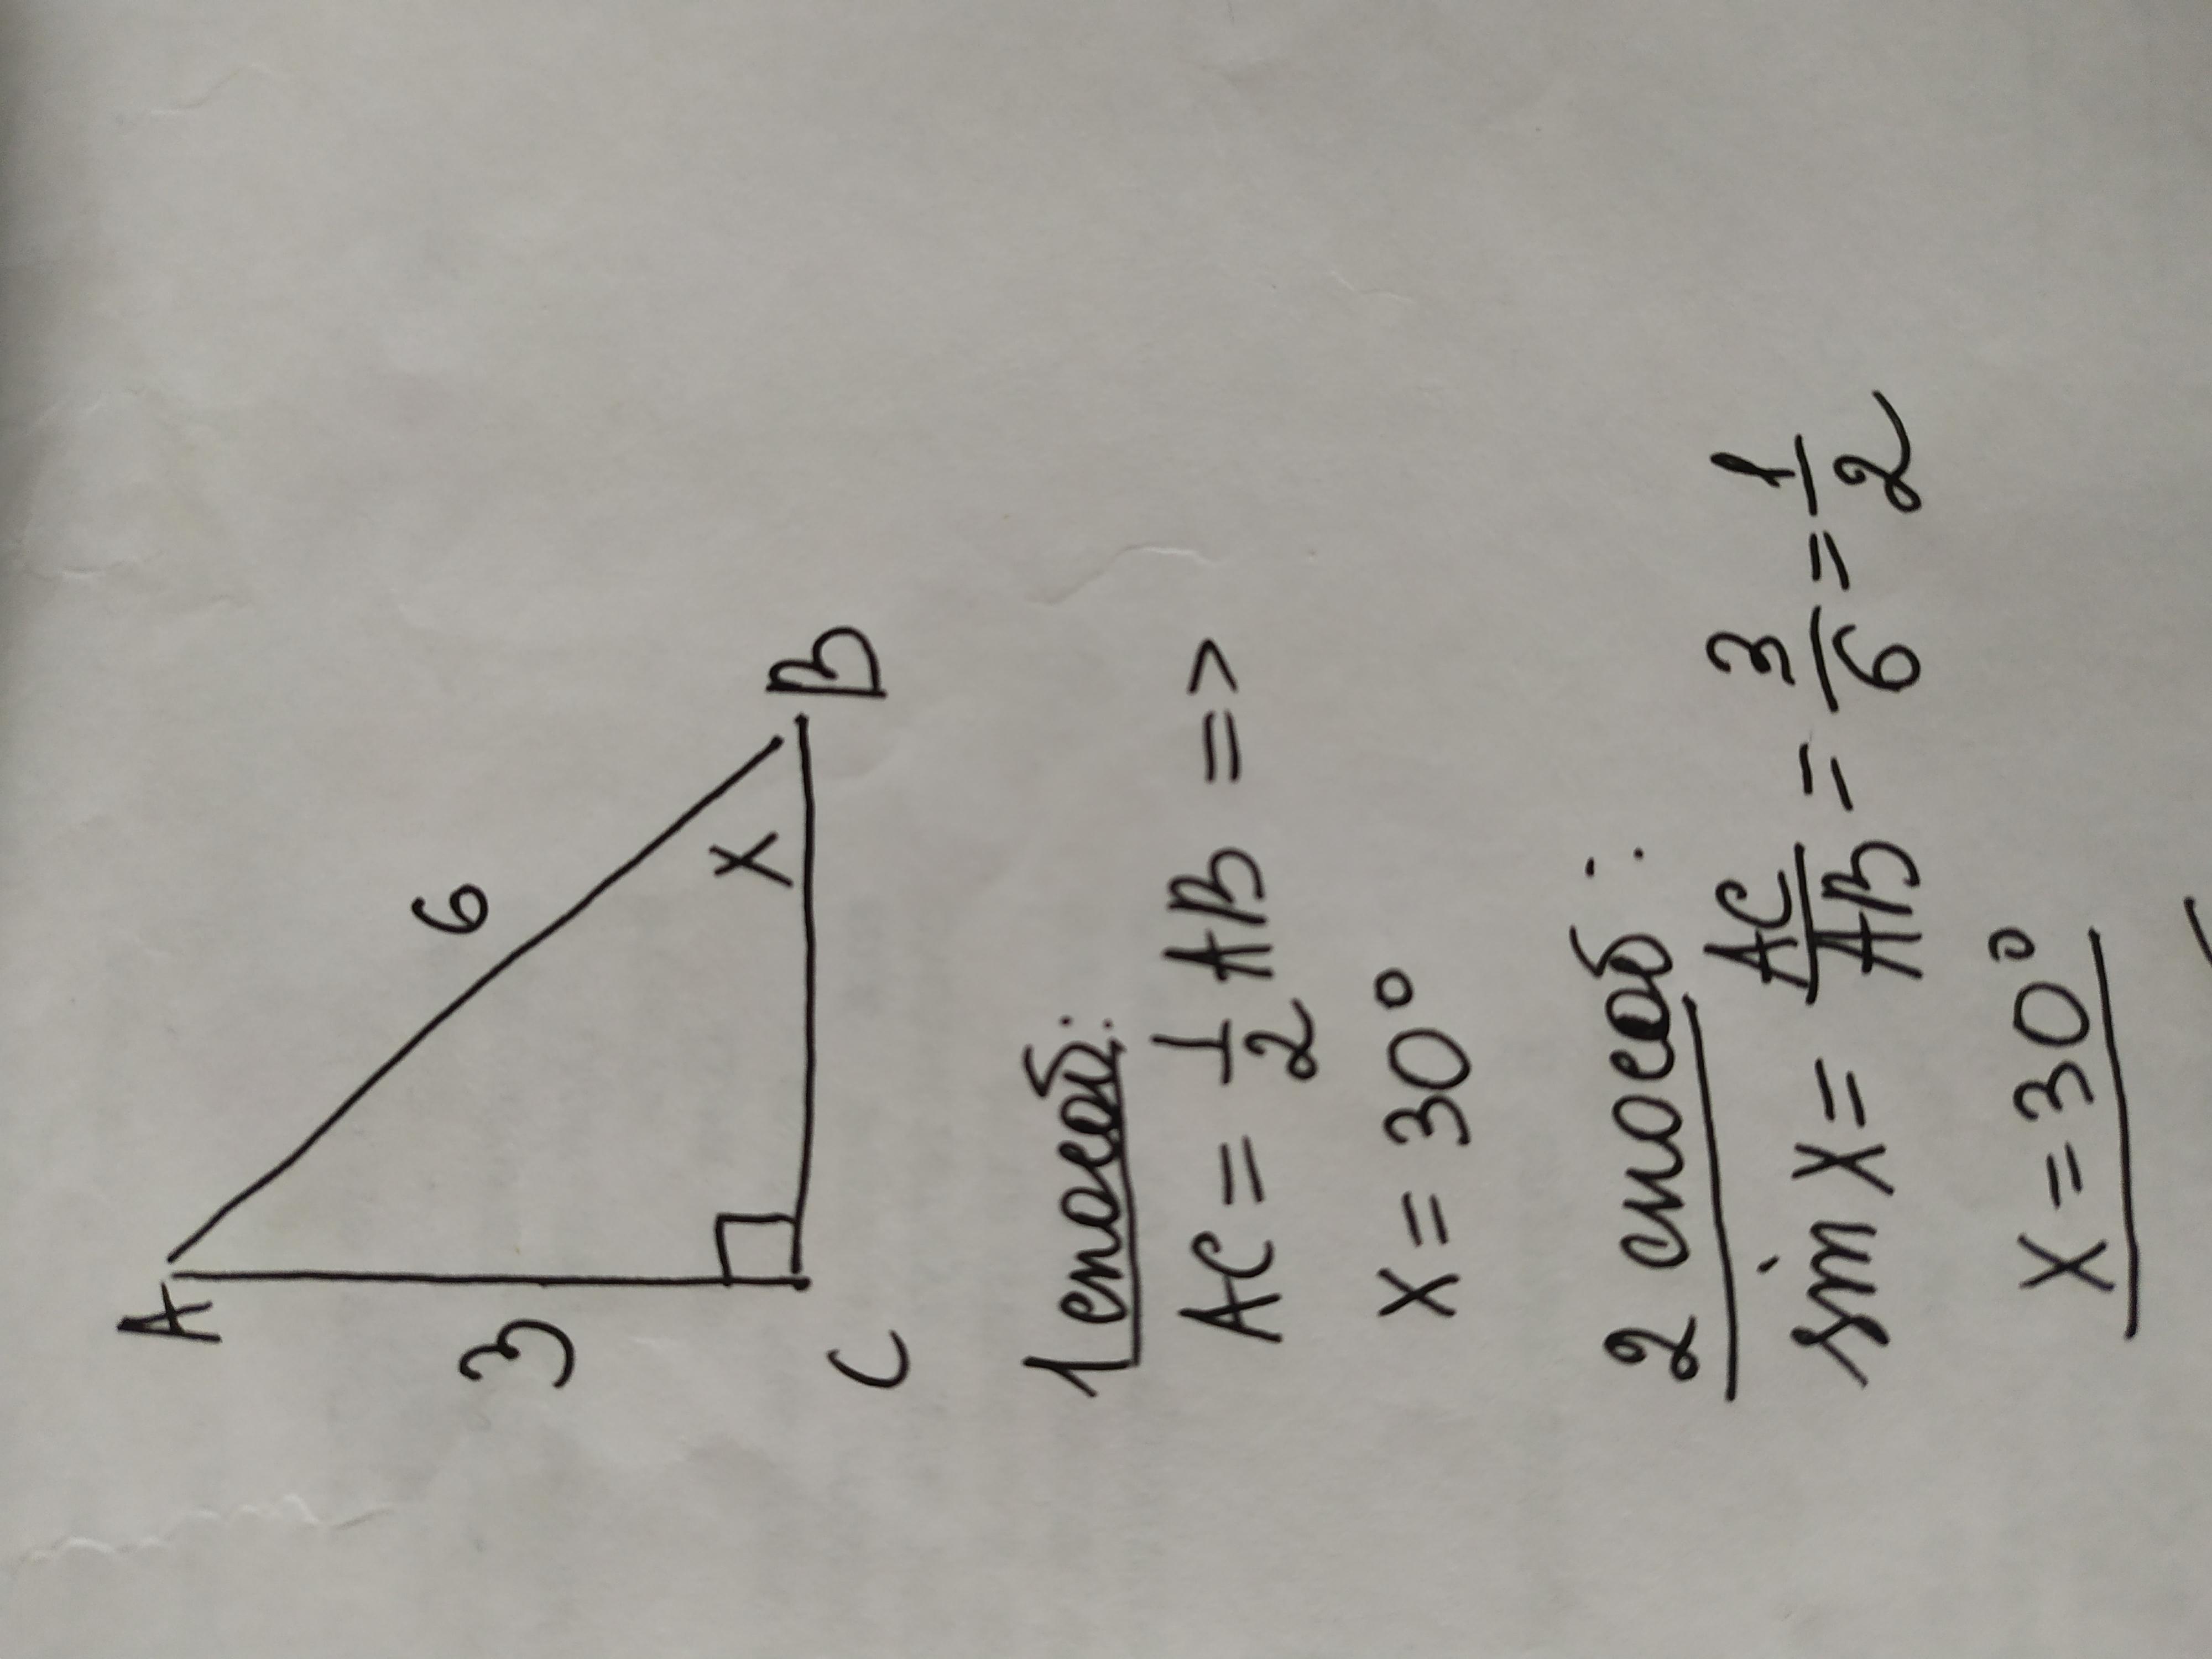 A
6
3
X
C
B
1 способ:
AC = 1/2 AB =>
X = 30°
2 способ:
sin X = AC/AB = 3/6 = 1/2
X = 30°